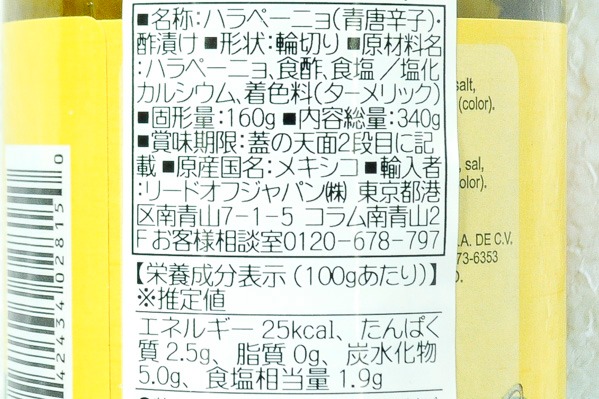 ■名称:ハラペーニョ(青唐辛子)・
酢漬け ■形状:輪切り ■原材料名
:ハラペーニョ、食酢、食塩/塩化
カルシウム、着色料(ターメリック)
■固形量:160g ■内容総量:340g
■賞味期限:蓋の天面2段目に記
載 ■原産国名:メキシコ ■輸入者
:リードオフジャパン㈱ 東京都港
区南青山7-1-5 コラム南青山2
F お客様相談室0120-678-797
【栄養成分表示(100gあたり)】
※推定値
エネルギー 25kcal、たんぱく
質 2.5g、脂質 0g、炭水化物
5.0g、食塩相当量 1.9g
salt,
(color).
, sal,
olor).
.A. DE C.V.
73-6353
42434 02815 0